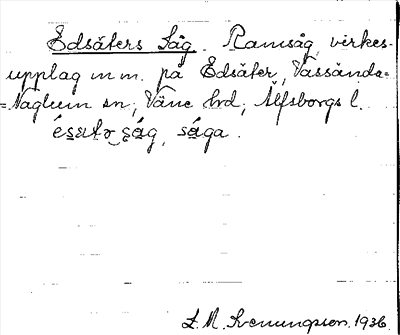 Edsäters Såg. Ramsåg, virkes-
upplag m m. på Edsäter, Vassända-
=Naglum sn, Väne hd, Älfsborgs l.
såga.
L. M. Svenungson. 1936.